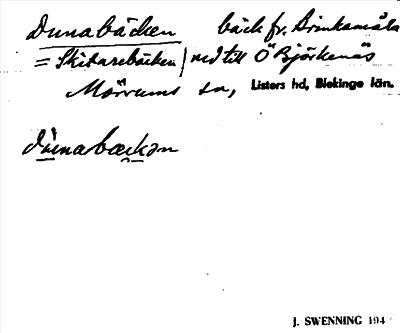 Dunabäcken bäck fr. Drinkamåla
= Skitarebäcken) ned till Ö Björkenäs
Mörrums sn, Listers hd, Blekinge län.
dùnabækən
J. SWENNING 194